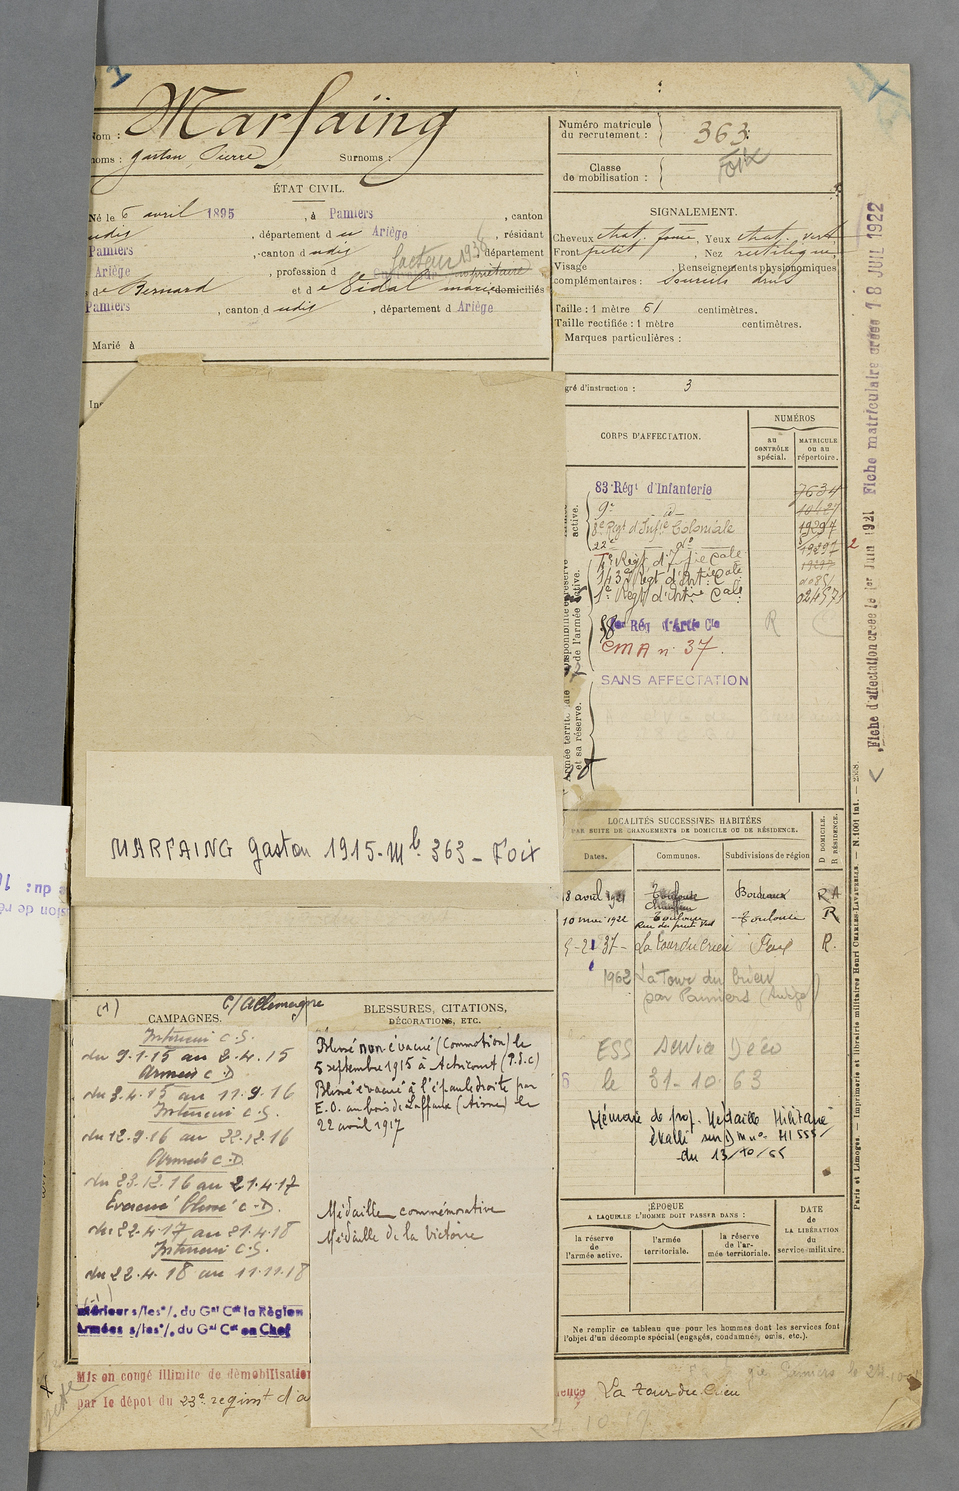 Nom : Marfaing
noms : Gaston Pierre Surnoms :
ÉTAT CIVIL.
Né le 6 avril 1895, à Pamiers, canton
udis, département d u Ariège, résidant
Pamiers, canton d udis, département
facteur 1938
Ariège, profession d propriétaire
s de Bernard et d e Vidal marie domiciliés
Pamiers, canton d udis, département d Ariège
Marié à
Numéro matricule
du recrutement : 363
Foix
Classe
de mobilisation :
SIGNALEMENT.
Cheveux chat. foncé, Yeux chat. vert
Front petit, Nez rectiligne
Visage , Renseignements physionomiques
complémentaires : sourcils droits
Taille : 1 mètre 61 centimètres.
Taille rectifiée : 1 mètre centimètres.
Marques particulières :
gré d'instruction : 3
CORPS D'AFFECTATION.
NUMÉROS
AU CONTRÔLE spécial.
MATRICULE OU AU répertoire.
83e Régt d'Infanterie 7634
9e d° 10427
8e Régt d'Inf.ie Coloniale 19297
22e d° 19297
1er Régt d'Artie Cale 02457
Rég d'Artie Cle R
CMA n° 37.
SANS AFFECTATION
Armée territoriale et sa réserve.
Fiche d'affectation créée le 1er Juin 1921 Fiche matriculaire créée 18 JUIL 1922
MARFAING Gaston 1915 - Mle 363 - Foix
LOCALITÉS SUCCESSIVES HABITÉES
PAR SUITE DE CHANGEMENTS DE DOMICILE OU DE RÉSIDENCE.
D DOMICILE.
R RÉSIDENCE.
Dates. Communes. Subdivisions de région
8 avril 1921 Toulouse Bordeaux R A
10 mai 1922 Toulouse Toulouse R
Rue du puits vert
5-2-37- La tour du Crieu Foix R.
1962 La Tour du Crieu
par Pamiers (Ariège)
ESS Service
le 31-10-63
Mémoire de prop. Médaille Militaire
du 13/10/65
(1) c/ Allemagne
CAMPAGNES.
Intérieur C.S.
du 9.1.15 au 2.4.15
Armées C.D.
du 3.4.15 au 11.9.16
Intérieur C.S.
du 12.9.16 au 22.12.16
Armées C.D.
du 23.12.16 au 21.4.17
Evacué blessé C.D.
du 22.4.17 au 21.4.18
Intérieur C.S.
du 22.4.18 au 11.11.18
(1)
Intérieur s/les o/. du Gal Ct la Région
Armées s/les o/. du Gal Ct en Chef
BLESSURES, CITATIONS,
DÉCORATIONS, ETC.
Blessé non évacué (Commotion) le
5 septembre 1915 à (P.d.C)
Blessé évacué à l'épaule droite par
E.O. au bois de Laffaux (Aisne) le
22 avril 1917
Médaille commémorative
Médaille de la Victoire
ÉPOQUE
A LAQUELLE L'HOMME DOIT PASSER DANS :
la réserve de l'armée active.
l'armée territoriale.
la réserve de l'armée territoriale.
DATE
de
LA LIBÉRATION
du
service militaire.
Ne remplir ce tableau que pour les hommes dont les services font
l'objet d'un décompte spécial (engagés, condamnés, omis, etc.).
Mis en congé illimité de démobilisation
par le dépôt du 23e regimt d'a
La tour du Crieu
Paris et Limoges. — Imprimerie et librairie militaires Henri CHARLES-LAVAUZELLE. — N. 1001 int. — 2558.